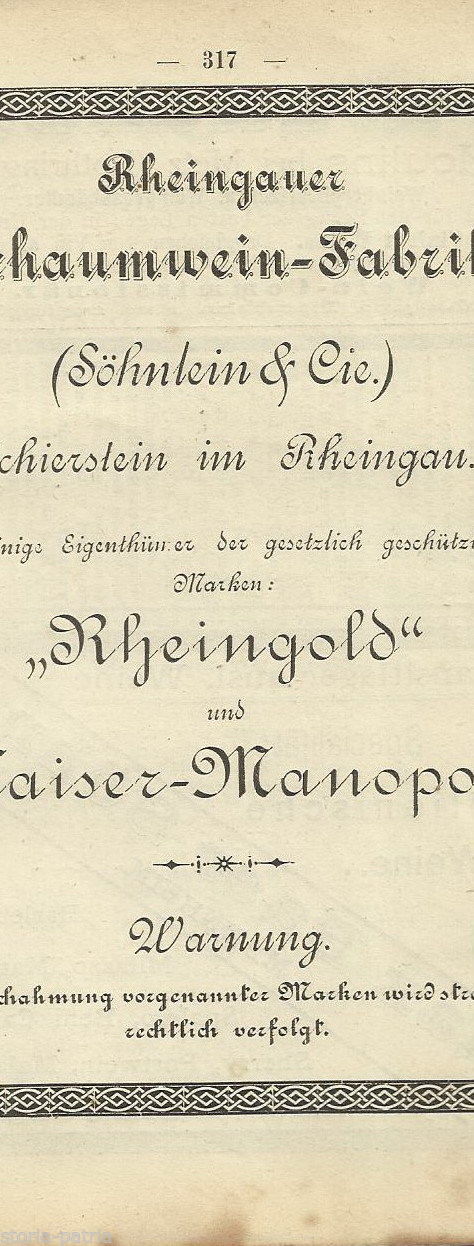 — 317 —
Rheingauer
chaumwein-Fabrik
(Söhnlein & Cie.)
chierstein im Rheingau.
nige Eigenthümer der gesetzlich geschütz
Marken:
„Rheingold“
und
aiser-Manopo
Warnung.
chahmung vorgenannter Marken wird stra
rechtlich verfolgt.
storia-patria